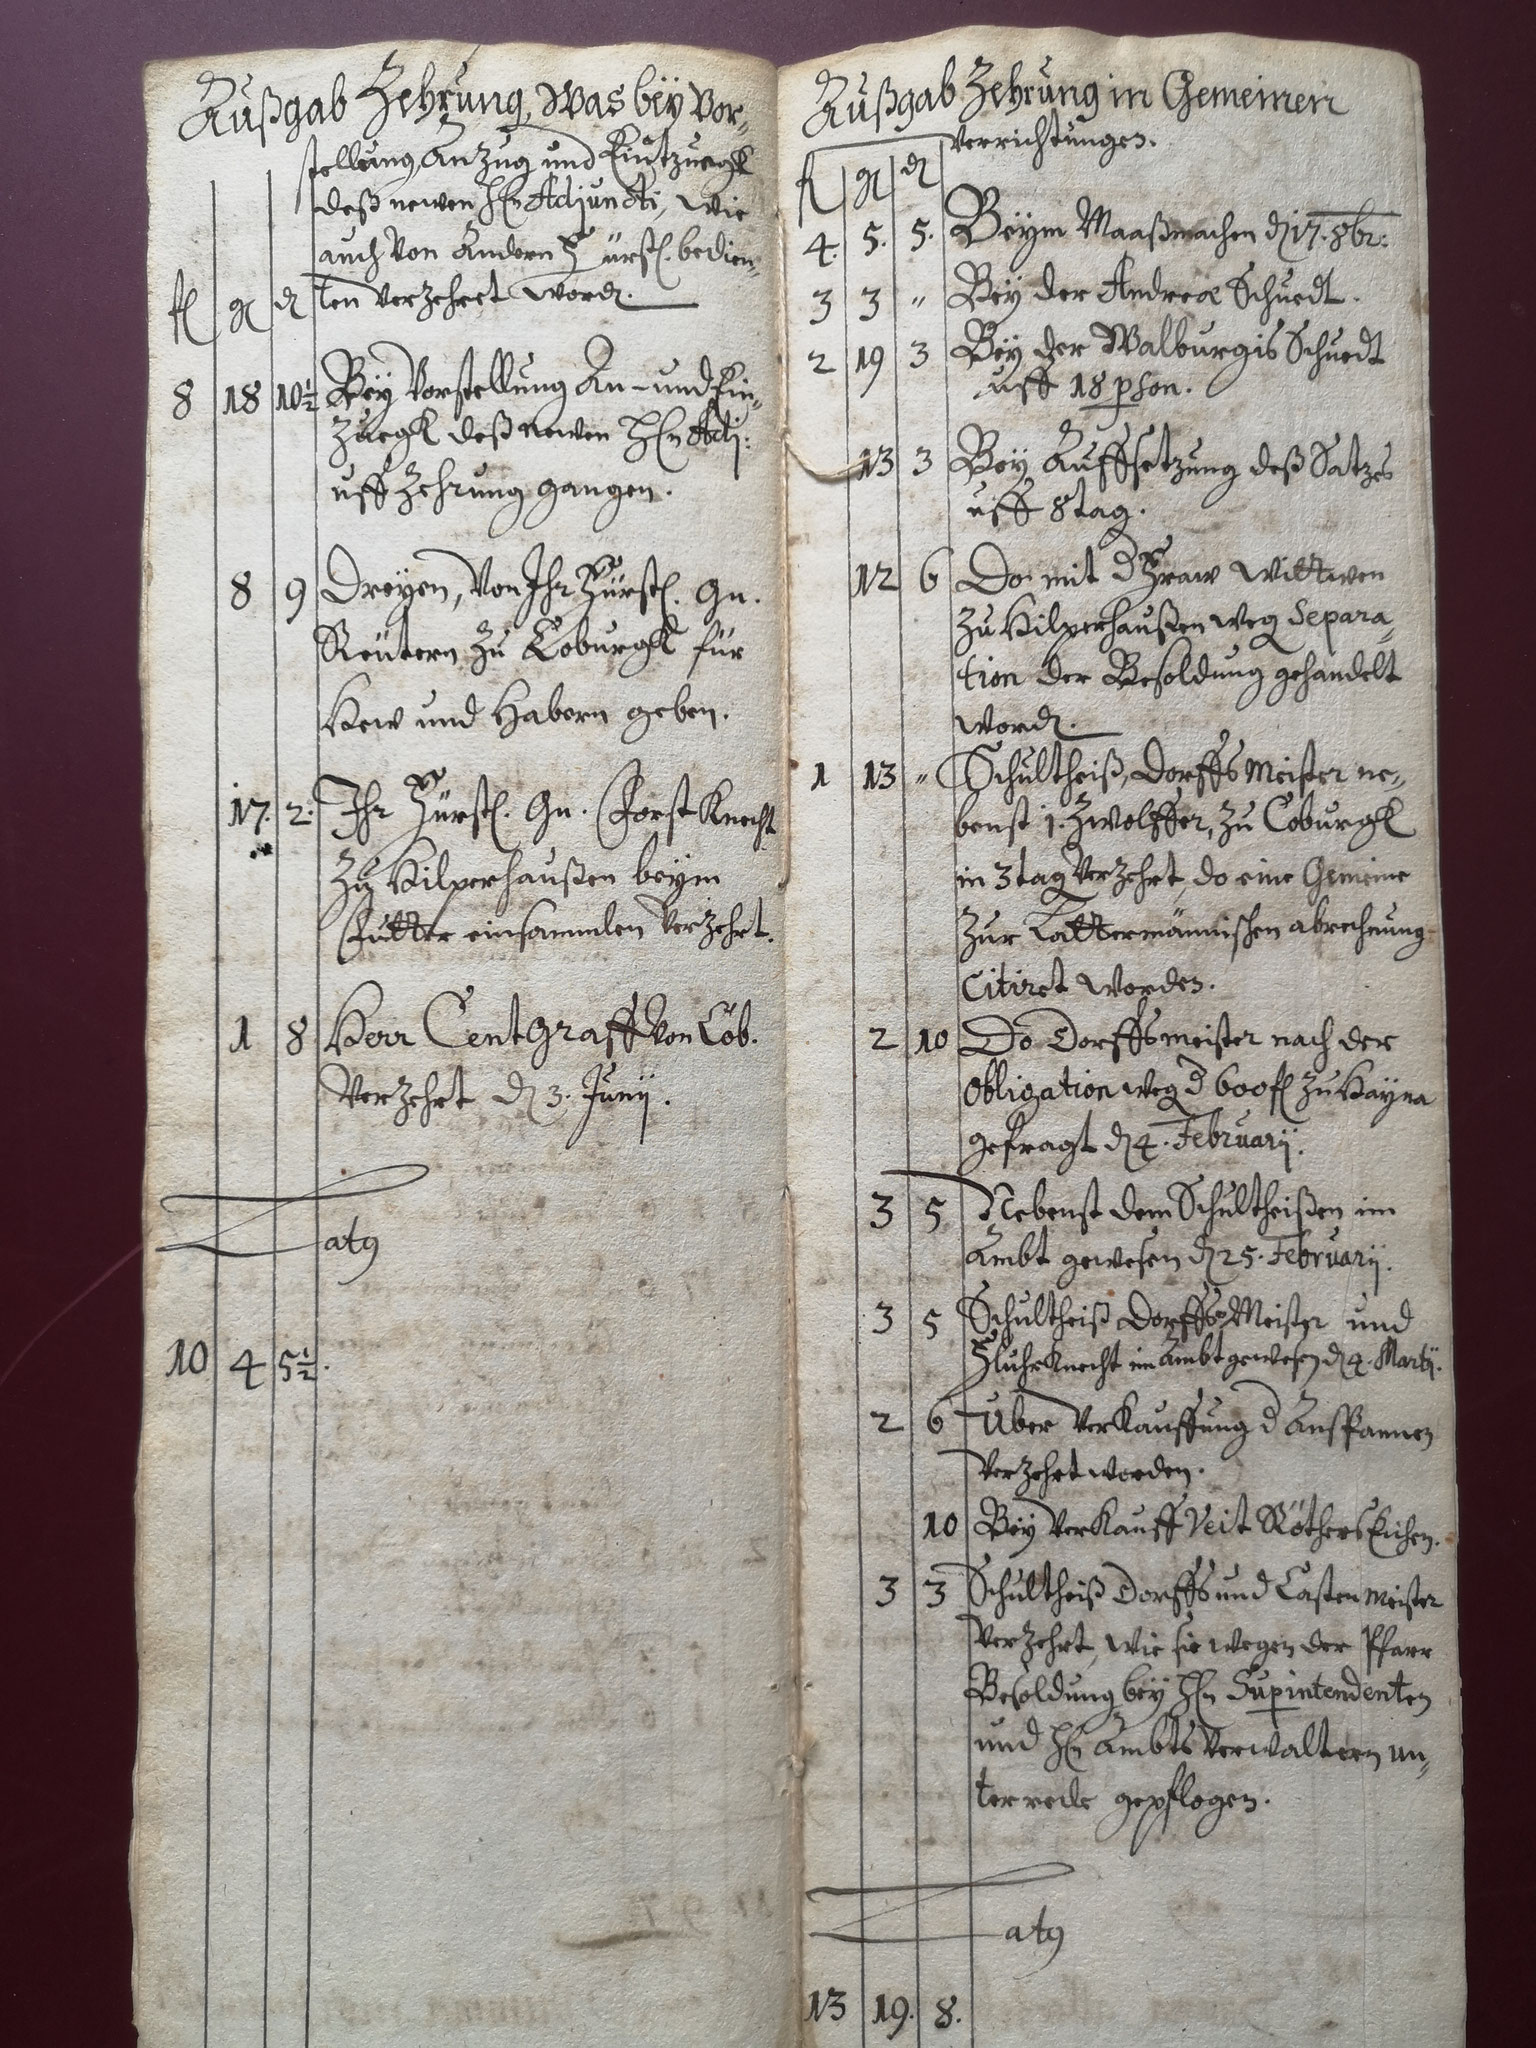 Außgab Zehrung, Was bëy Vor-
stellung, Anzug und Eintzuegk
deß newen Hn Adjuncti, wie
auch von Andern Fürstl. bedien-
fl gl d ten verzehret word.
8 18 10½ Bëy Vorstellung An- und Ein-
zuegk deß newen Hn Adj:
uff Zehrung gangen.
8 9 Dreyen, von Ihr Fürstl. Gn.
Reütern zu Coburgk für
Hew und Habern geben.
17. 2: Ihr Fürstl. Gn. Forst Knecht
zu Hilperhaußen beym
Futter einsammlen verzehrt.
1 8 Herr Centgraff von Cob.
verzehrt d 3. Junij.
Latq
10 4 5½.
Außgab Zehrung in Gemeinen
verrichtungen.
fl gl d
4. 5. 5. Bëym Maaßmachen d 17. 8br:
3 3 " Bëy der Andreæ Schuedt.
2 19 3 Bëy der Walburgis Schuedt
uff 18 pson.
13 3 Bëy Auffsetzung deß Satzes
uff 8 tag.
12 6 Do mit d Fraw Wittwen
zu Hilperhaußen weg Separa-
tion der Besoldung gehandelt
word.
1 13 " Schultheiß, Dorffs Meister ne-
benst 1. Zwölffer, zu Coburgk
in 3 tag verzehrt, do eine Gemeine
zur Lattermännischen abrechnung
Citiret worden.
2 10 Do Dorffsmeister nach der
Obligation weg d 600 fl zu Haÿna
gefragt d 4. Februarij.
3 5 Nebenst dem Schultheißen im
Ambt gewesen d 25. Februarij.
3 5 Schultheiß Dorffs Meister und
Fluhr Knecht im Ambt gewesen d 4. Martij.
2 6 Über verkauffung d AnsPannen
verzehrt worden.
10 Bëy verkauff Veit Röthers Eichen.
3 3 Schultheiß Dorffs und Casten meister
verzehrt, wie sie wegen der Pfarr
Besoldung bëy Hn Supintendenten
und Hn Ambts verwaltern un-
terrede gepflogen.
Latq
13 19. 8.